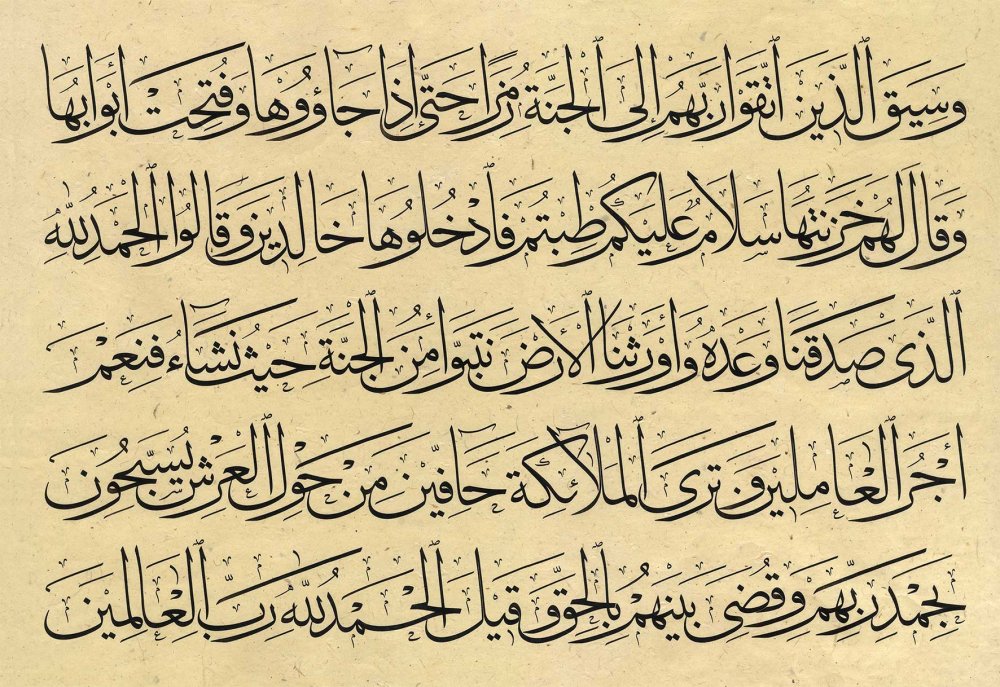 وَسِيقَ ٱلَّذِينَ ٱتَّقَوْا رَبَّهُمْ إِلَى ٱلْجَنَّةِ زُمَرًا حَتَّىٰ إِذَا جَآؤُوهَا وَفُتِحَتْ أَبْوَابُهَا
وَقَالَ لَهُمْ خَزَنَتُهَا سَلَامٌ عَلَيْكُمْ طِبْتُمْ فَادْخُلُوهَا خَالِدِينَ وَقَالُوا ٱلْحَمْدُ لِلّٰهِ
ٱلَّذِى صَدَقَنَا وَعْدَهُ وَأَوْرَثَنَا ٱلْأَرْضَ نَتَبَوَّأُ مِنَ ٱلْجَنَّةِ حَيْثُ نَشَآءُ فَنِعْمَ
أَجْرُ ٱلْعَامِلِينَ وَتَرَى ٱلْمَلَآئِكَةَ حَآفِّينَ مِنْ حَوْلِ ٱلْعَرْشِ يُسَبِّحُونَ
بِحَمْدِ رَبِّهِمْ وَقُضِىَ بَيْنَهُمْ بِٱلْحَقِّ وَقِيلَ ٱلْحَمْدُ لِلّٰهِ رَبِّ ٱلْعَالَمِينَ